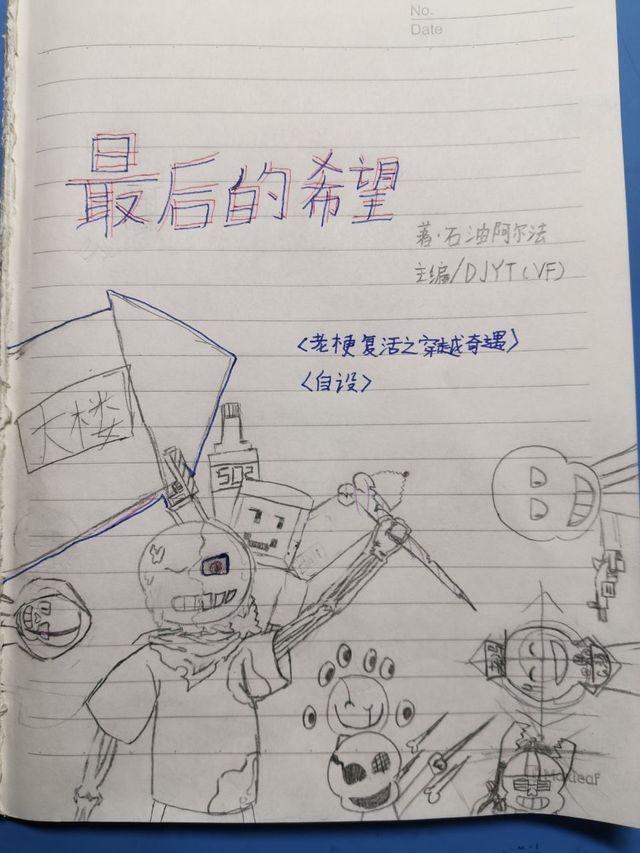 No.
Date
最后的希望
著·石油阿尔法
主编/DJYT(VF)
<老梗复活之穿越奇遇>
<自设>
大楼
502